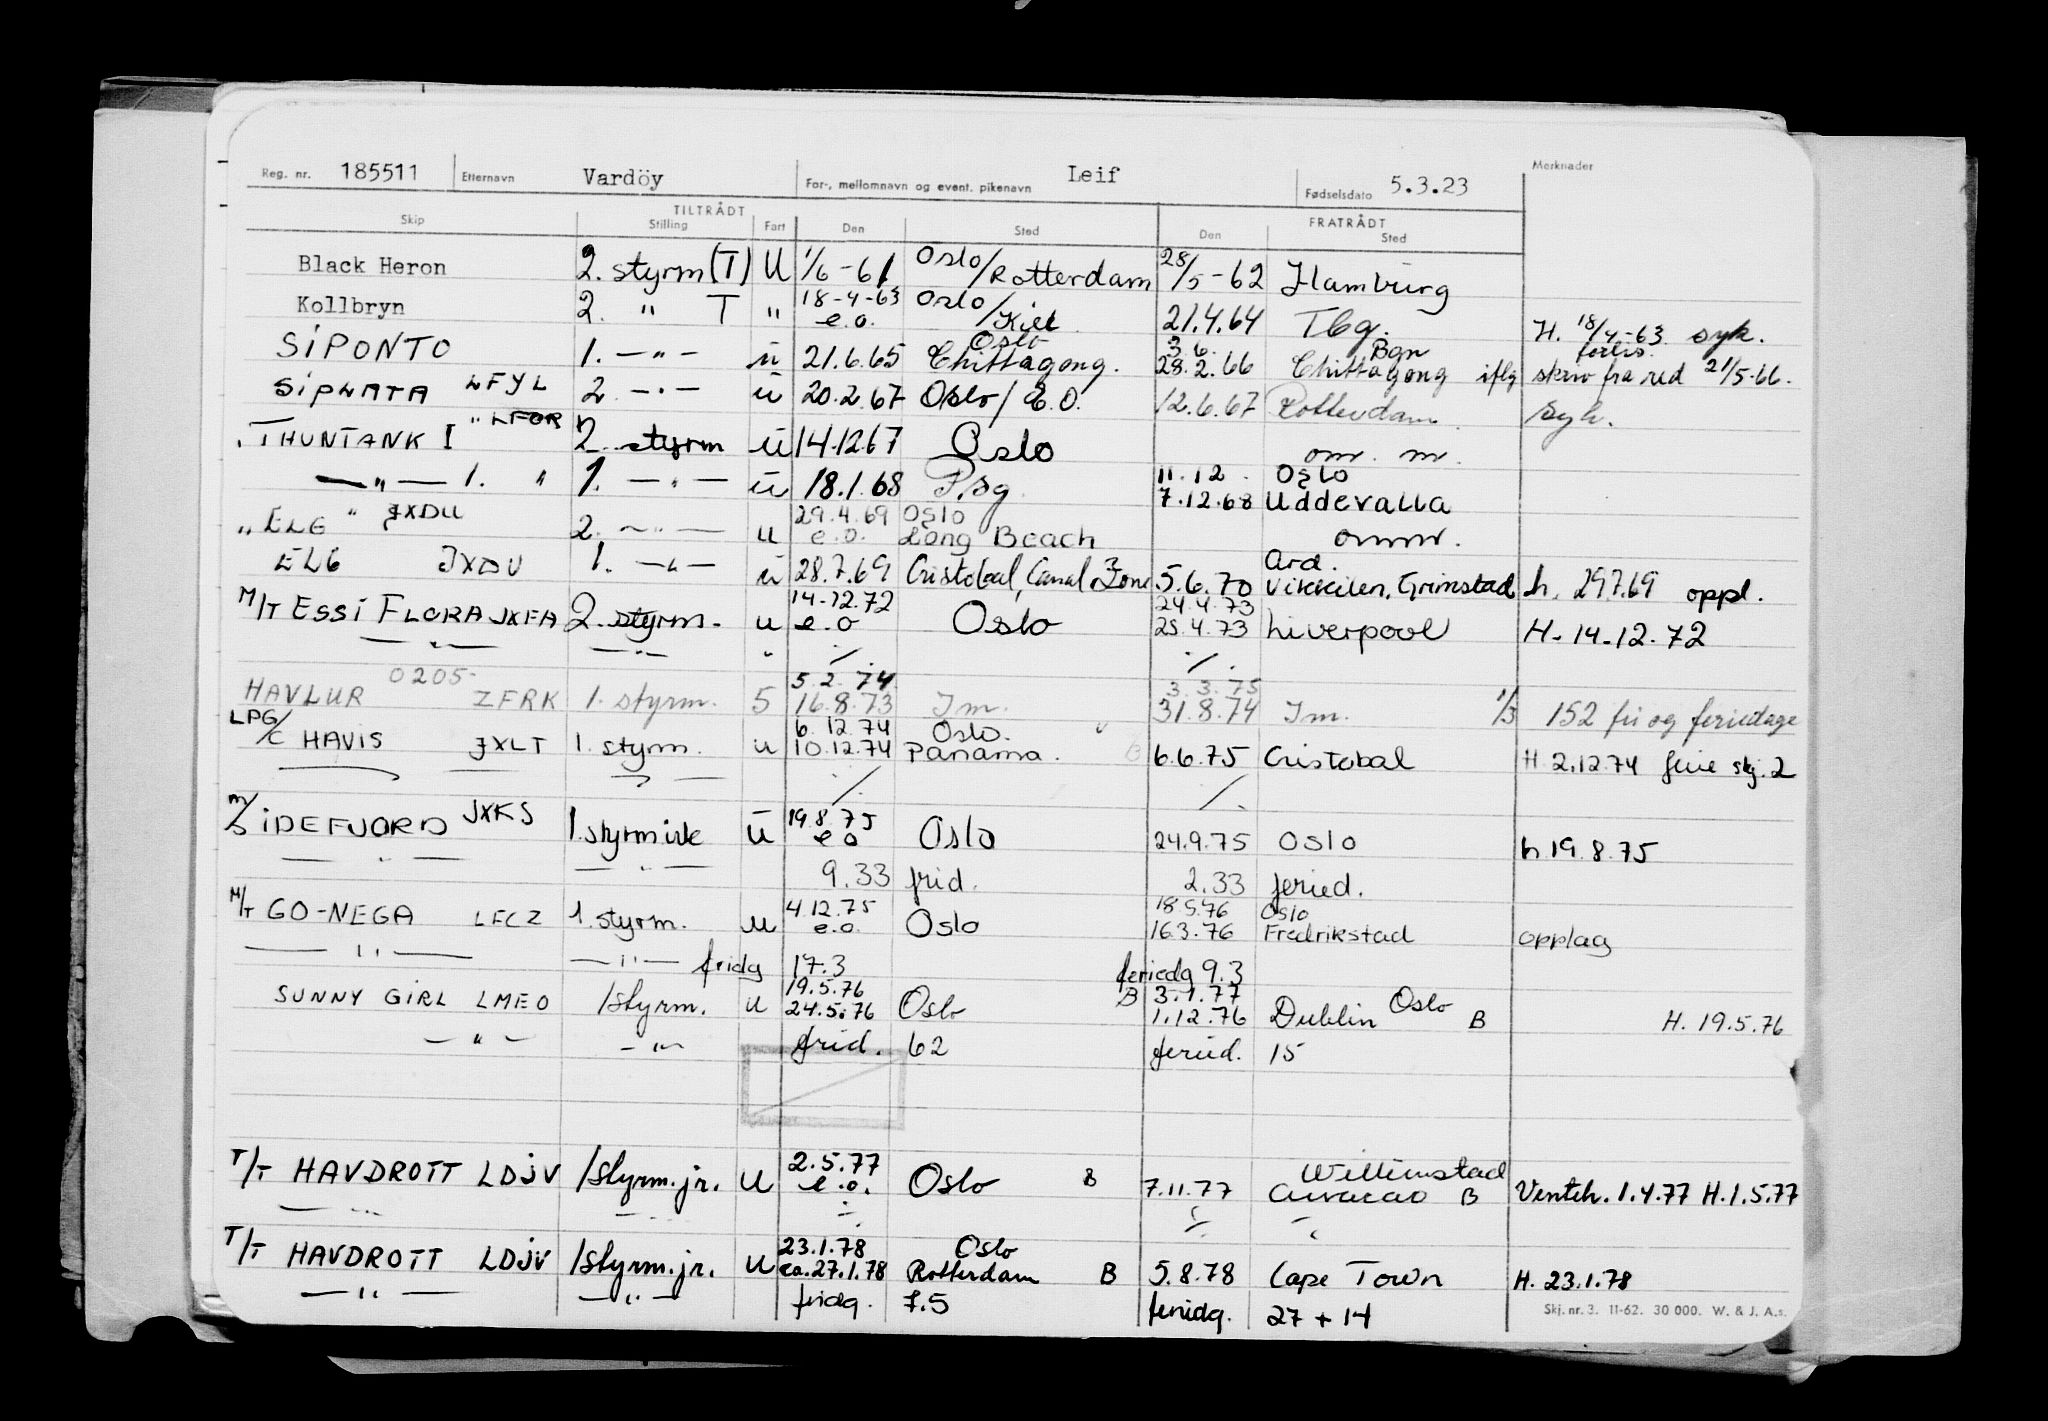 Reg. nr. 185511 Etternavn Vardöy For-, mellomnavn og event. pikenavn Leif Fødselsdato 5.3.23 Merknader
TILTRÅDT FRATRÅDT
Skip Stilling Fart Den Sted Den Sted
Black Heron 2. styrm (T) U 1/6-61 Oslo/Rotterdam 28/5-62 Hamburg
Kollbryn 2. " T " 18-4-63 e.o. Oslo/Kiel 21.4.64 Tbg. H. 18/4-63 syk.
Oslo 3.6. Bgn forlis.
SIPONTO 1. —"— u 21.6.65 Chittagong. 28.2.66 Chittagong iflg skriv fra red 21/5-66.
SIPLATA LFYL 2. —"— u 20.2.67 Oslo/E.O. 12.6.67 Rotterdam. syk.
THUNTANK I " LFOR 2. styrm u 14.12.67 Oslo om. m.
—"— 1. " 1. —"— u 18.1.68 P.sg. 11.12. Oslo
7.12.68 Uddevalla
29.4.69 Oslo
"ELG" JXDU 2. —"— u e.o. Long Beach omm.
Ard.
ELG JXDU 1. —"— u 28.7.69 Cristobal, Canal Zone 5.6.70 Vikkilen, Grimstad h. 29.7.69 oppl.
14-12.72 24.4.73
M/T ESSI FLORA JXFA 2 styrm. u e.o Oslo 25.4.73 Liverpool H. 14-12.72
—"— —"— " ./. ./.
0205- 5.2.74 3.3.75
HAVLUR ZFRK 1. styrm. 5 16.8.73 Im. 31.8.74 Im. 1/3 152 fri og feriedage
6.12.74 Oslo.
LPG/C HAVIS JXLT 1. styrm. u 10.12.74 Panama. B 6.6.75 Cristobal H 2.12.74 ferie skj. 2
./. ./.
19.8.75
M/S IDEFJORD JXKS 1. styrm u e o Oslo 24.9.75 Oslo h 19.8.75
—"— —"— 9.33 frid. 2.33 feried.
4.12.75 18.5.76 Oslo
M/T GO-NEGA LFCZ 1. styrm. u e.o. Oslo 16.3.76 Fredrikstad opplag
—"— —"— fridg 17.3 feriedg 9.3
19.5.76 B 3.1.77 Oslo
SUNNY GIRL LMEO 1styrm. u 24.5.76 Oslo 1.12.76 Dublin B H. 19.5.76
—"— —"— frid. 62 feried. 15
2.5.77 Willemstad
T/T HAVDROTT LDJV 1styrm.jr. U e.o. Oslo B 7.11.77 Curacao B Venteh. 1.4.77 H. 1.5.77
—"— —"— ./. ./. "
23.1.78 Oslo
T/T HAVDROTT LDJV 1styrm.jr. U ca.27.1.78 Rotterdam B 5.8.78 Cape Town H. 23.1.78
—"— —"— fridg. 7.5 feriedg. 27 + 14
Skj. nr. 3. 11-62. 30 000. W. & J. A.s.